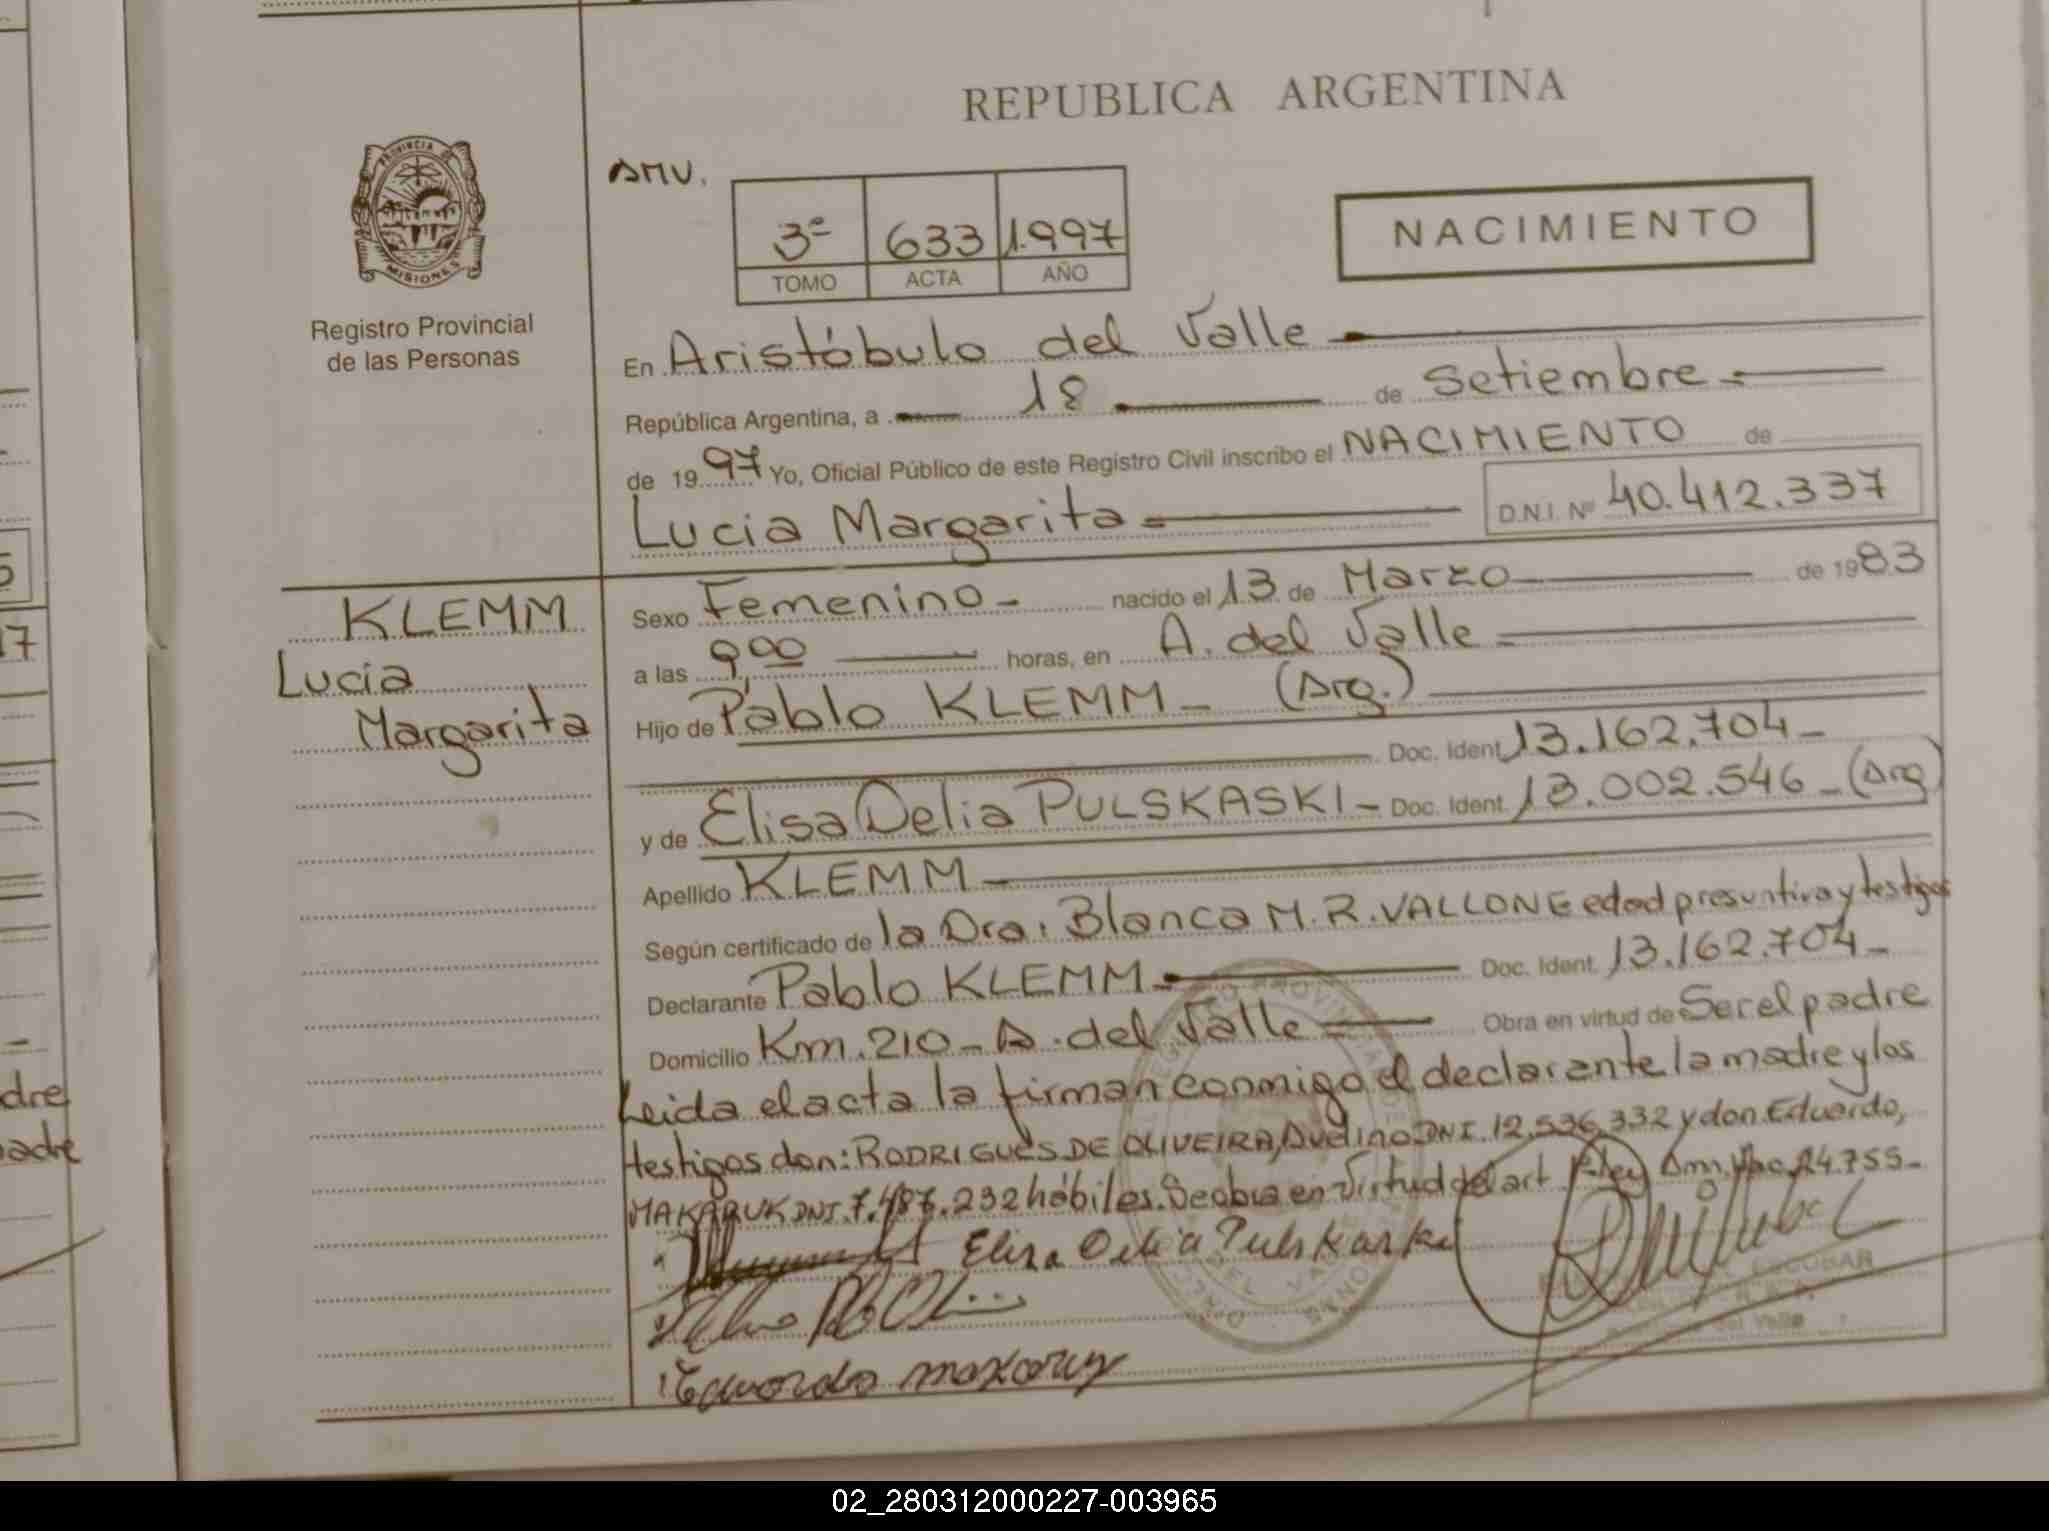 REPUBLICA ARGENTINA
AMV.
3º 633 1.997
TOMO ACTA AÑO
NACIMIENTO
PROVINCIA DE
MISIONES
Registro Provincial
de las Personas
En Aristóbulo del Valle
República Argentina, a 18 de Setiembre
de 1997 Yo, Oficial Público de este Registro Civil inscribo el NACIMIENTO de
Lucia Margarita D.N.I. Nº 40.412.337
KLEMM
Lucía
Margarita
Sexo Femenino nacido el 13 de Marzo de 1983
a las 9,00 horas, en A. del Valle
Hijo de Pablo KLEMM (Arg.)
Doc. Ident. 13.162.704
y de Elisa Delia PULSKASKI Doc. Ident. 13.002.546 (Arg)
Apellido KLEMM
Según certificado de la Dra. Blanca M.R. VALLONE edad presuntiva y testigos
Declarante Pablo KLEMM Doc. Ident. 13.162.704
Domicilio Km. 210 A. del Valle Obra en virtud de Ser el padre
Leida el acta la firman conmigo el declarante la madre y los
testigos don: RODRIGUES DE OLIVEIRA, Avelino DNI. 12.536.332 y don Eduardo,
MAKARUK DNI. 7.487.232 hábiles. Se obra en Virtud del art Ley 24.755
Elisa Delia Pulskaski
Eduardo
ESCOBAR
del Valle
17
dre
adre
02_280312000227-003965